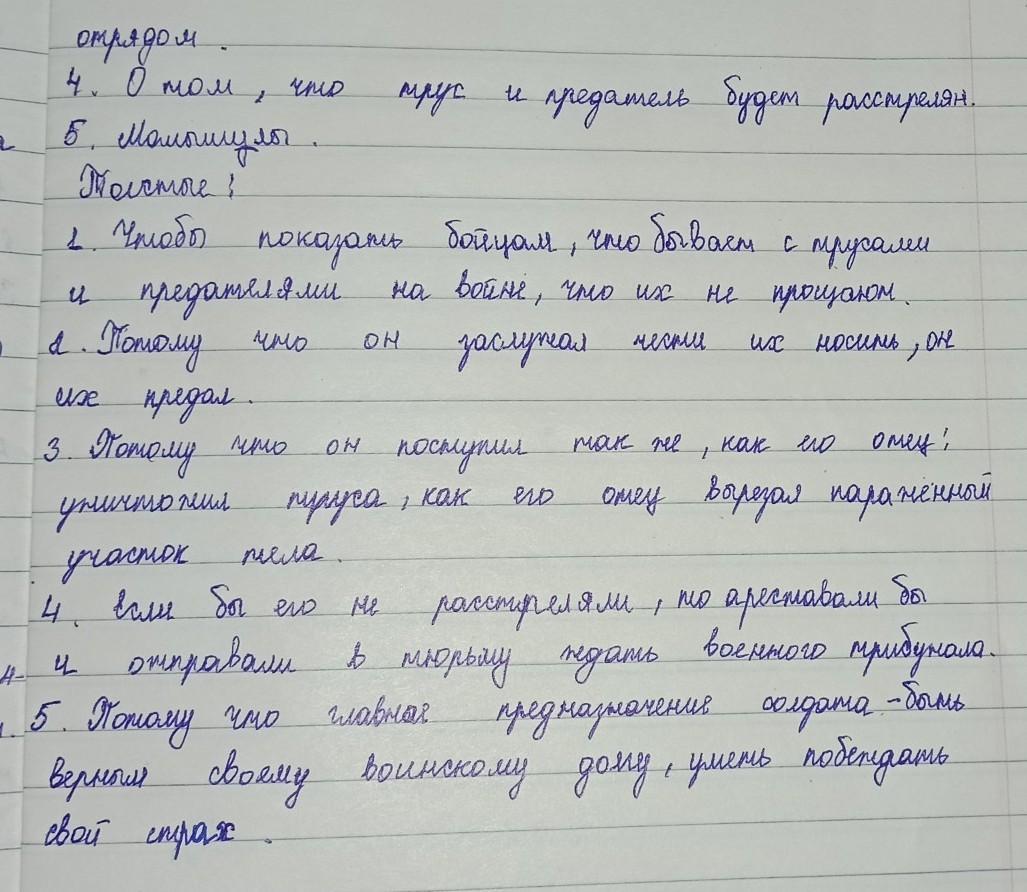 отрядом.
4. О том, что трус и предатель будет расстрелян.
5. Момышулы.
Толстые:
1. Чтобы показать бойцам, что бывает с трусами
и предателями на войне, что их не прощают.
2. Потому что он заслужал чести их носить, он
их предал.
3. Потому что он поступил так же, как его отец:
уничтожил труса, как его отец вырезал паражённый
участок тела.
4. Если бы его не расстреляли, то ареставали бы
и отправали в тюрьму ждать военного трибунала.
5. Потому что главное предназначение солдата - быть
верным своему воинскому долгу, уметь побеждать
свой страх.